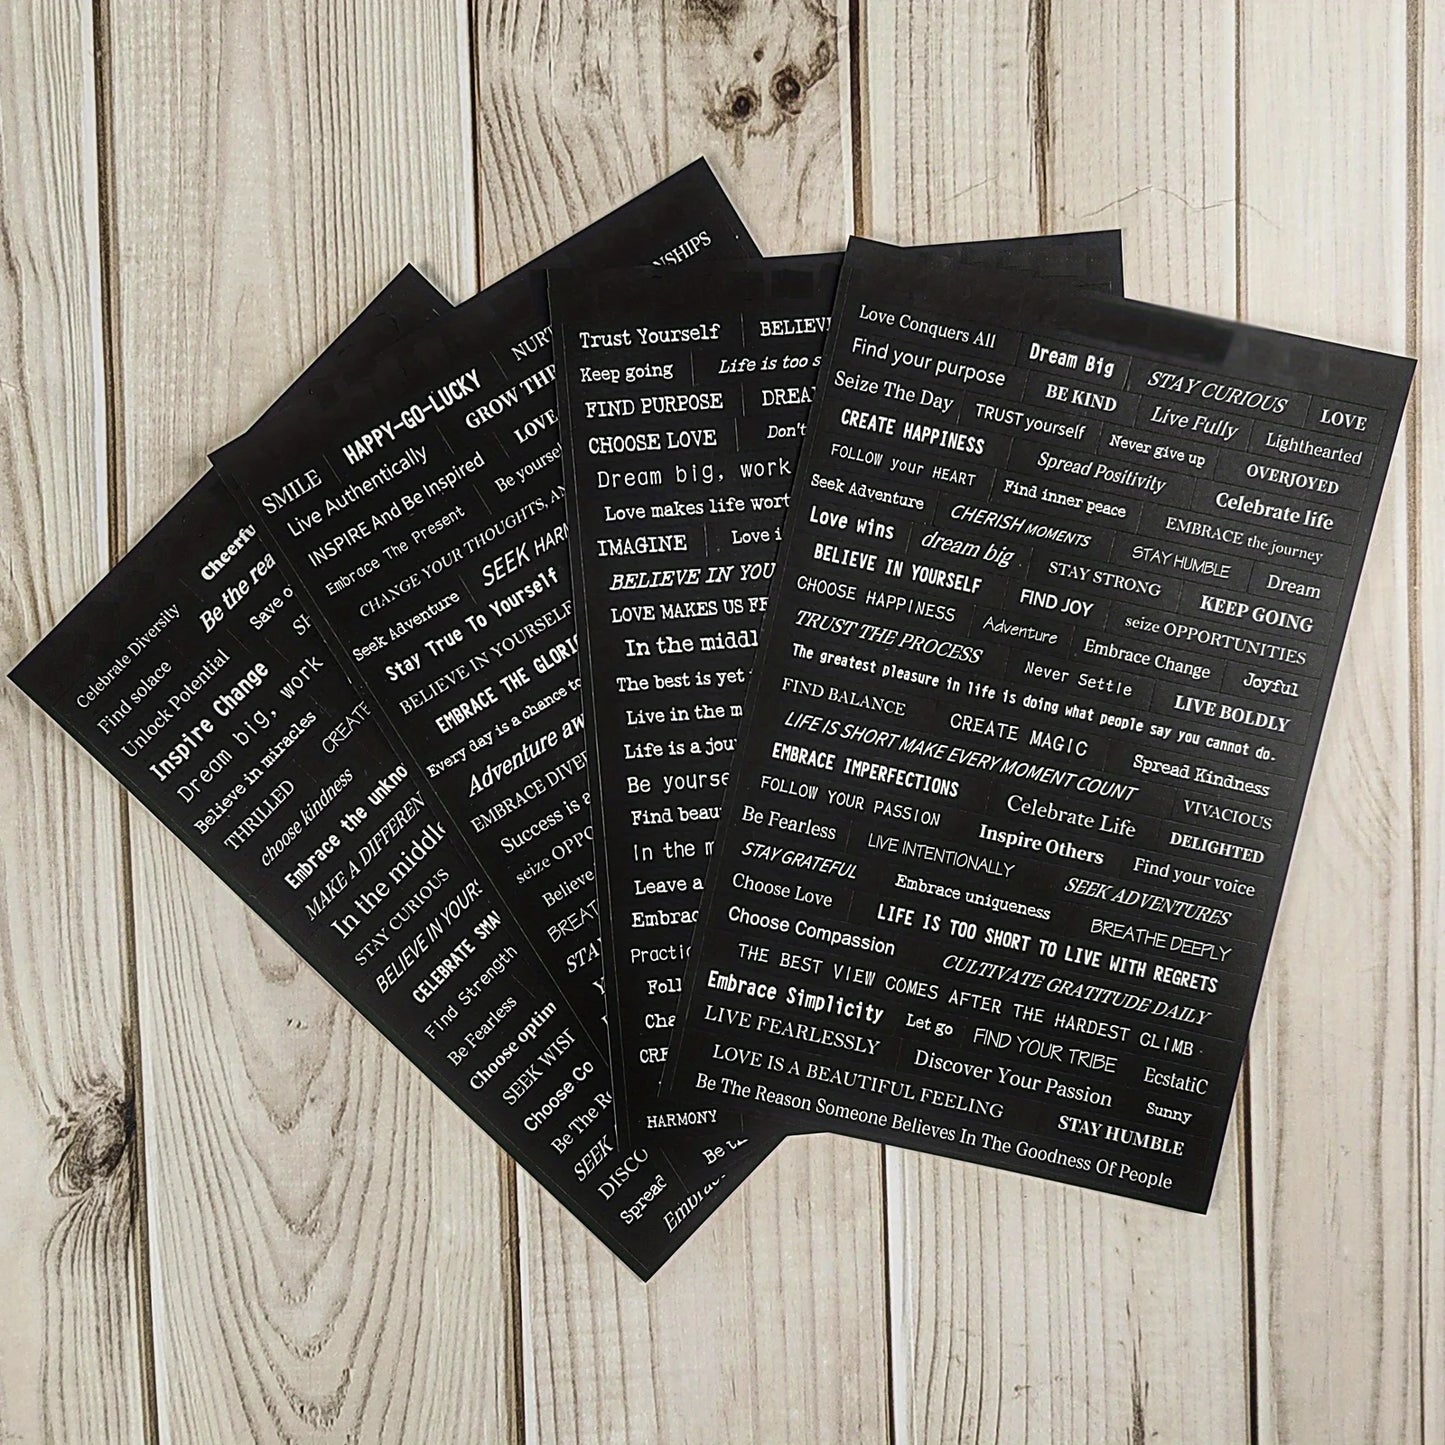 Celebrate Diversity
Find solace
Unlock Potential
Inspire Change
Dream big, work
Believe in miracles
THRILLED CREATE
choose kindness
Embrace the
MAKE A
In the
STAY CURIOUS
BELIEVE IN
CELEBRATE
Find Strength
Be Fearless
Choose
SEEK
Choose
Be The
SEEK
Spread
SMILE HAPPY-GO-LUCKY
Live Authentically GROW
INSPIRE And Be Inspired LOVE
Embrace The Present Be
CHANGE YOUR THOUGHTS,
Seek Adventure SEEK
Stay True To Yourself
BELIEVE IN YOURSELF
EMBRACE THE
Every day is a chance to
Adventure
EMBRACE
Success is a
seize
Believe
HARMONY
Trust Yourself
Keep going Life is too
FIND PURPOSE
CHOOSE LOVE
Dream big, work
Love makes life
IMAGINE Love
BELIEVE IN
LOVE MAKES US
In the
The best is yet
Live in the
Life is a
Be
Find
In the
Leave a
Love Conquers All Dream Big STAY CURIOUS LOVE
Find your purpose BE KIND Live Fully Lighthearted
Seize The Day TRUST yourself Never give up OVERJOYED
CREATE HAPPINESS Spread Positivity Celebrate life
FOLLOW your HEART Find inner peace EMBRACE the journey
Seek Adventure CHERISH MOMENTS STAY HUMBLE Dream
Love wins dream big STAY STRONG KEEP GOING
BELIEVE IN YOURSELF FIND JOY seize OPPORTUNITIES
CHOOSE HAPPINESS Adventure Embrace Change Joyful
TRUST THE PROCESS Never Settle LIVE BOLDLY
The greatest pleasure in life is doing what people say you cannot do.
FIND BALANCE CREATE MAGIC Spread Kindness
LIFE IS SHORT MAKE EVERY MOMENT COUNT VIVACIOUS
EMBRACE IMPERFECTIONS Celebrate Life DELIGHTED
FOLLOW YOUR PASSION Inspire Others Find your voice
Be Fearless LIVE INTENTIONALLY SEEK ADVENTURES
STAY GRATEFUL Embrace uniqueness BREATHE DEEPLY
Choose Love LIFE IS TOO SHORT TO LIVE WITH REGRETS
Choose Compassion CULTIVATE GRATITUDE DAILY
THE BEST VIEW COMES AFTER THE HARDEST CLIMB.
Embrace Simplicity Let go FIND YOUR TRIBE EcstatiC
LIVE FEARLESSLY Discover Your Passion Sunny
LOVE IS A BEAUTIFUL FEELING STAY HUMBLE
Be The Reason Someone Believes In The Goodness Of People